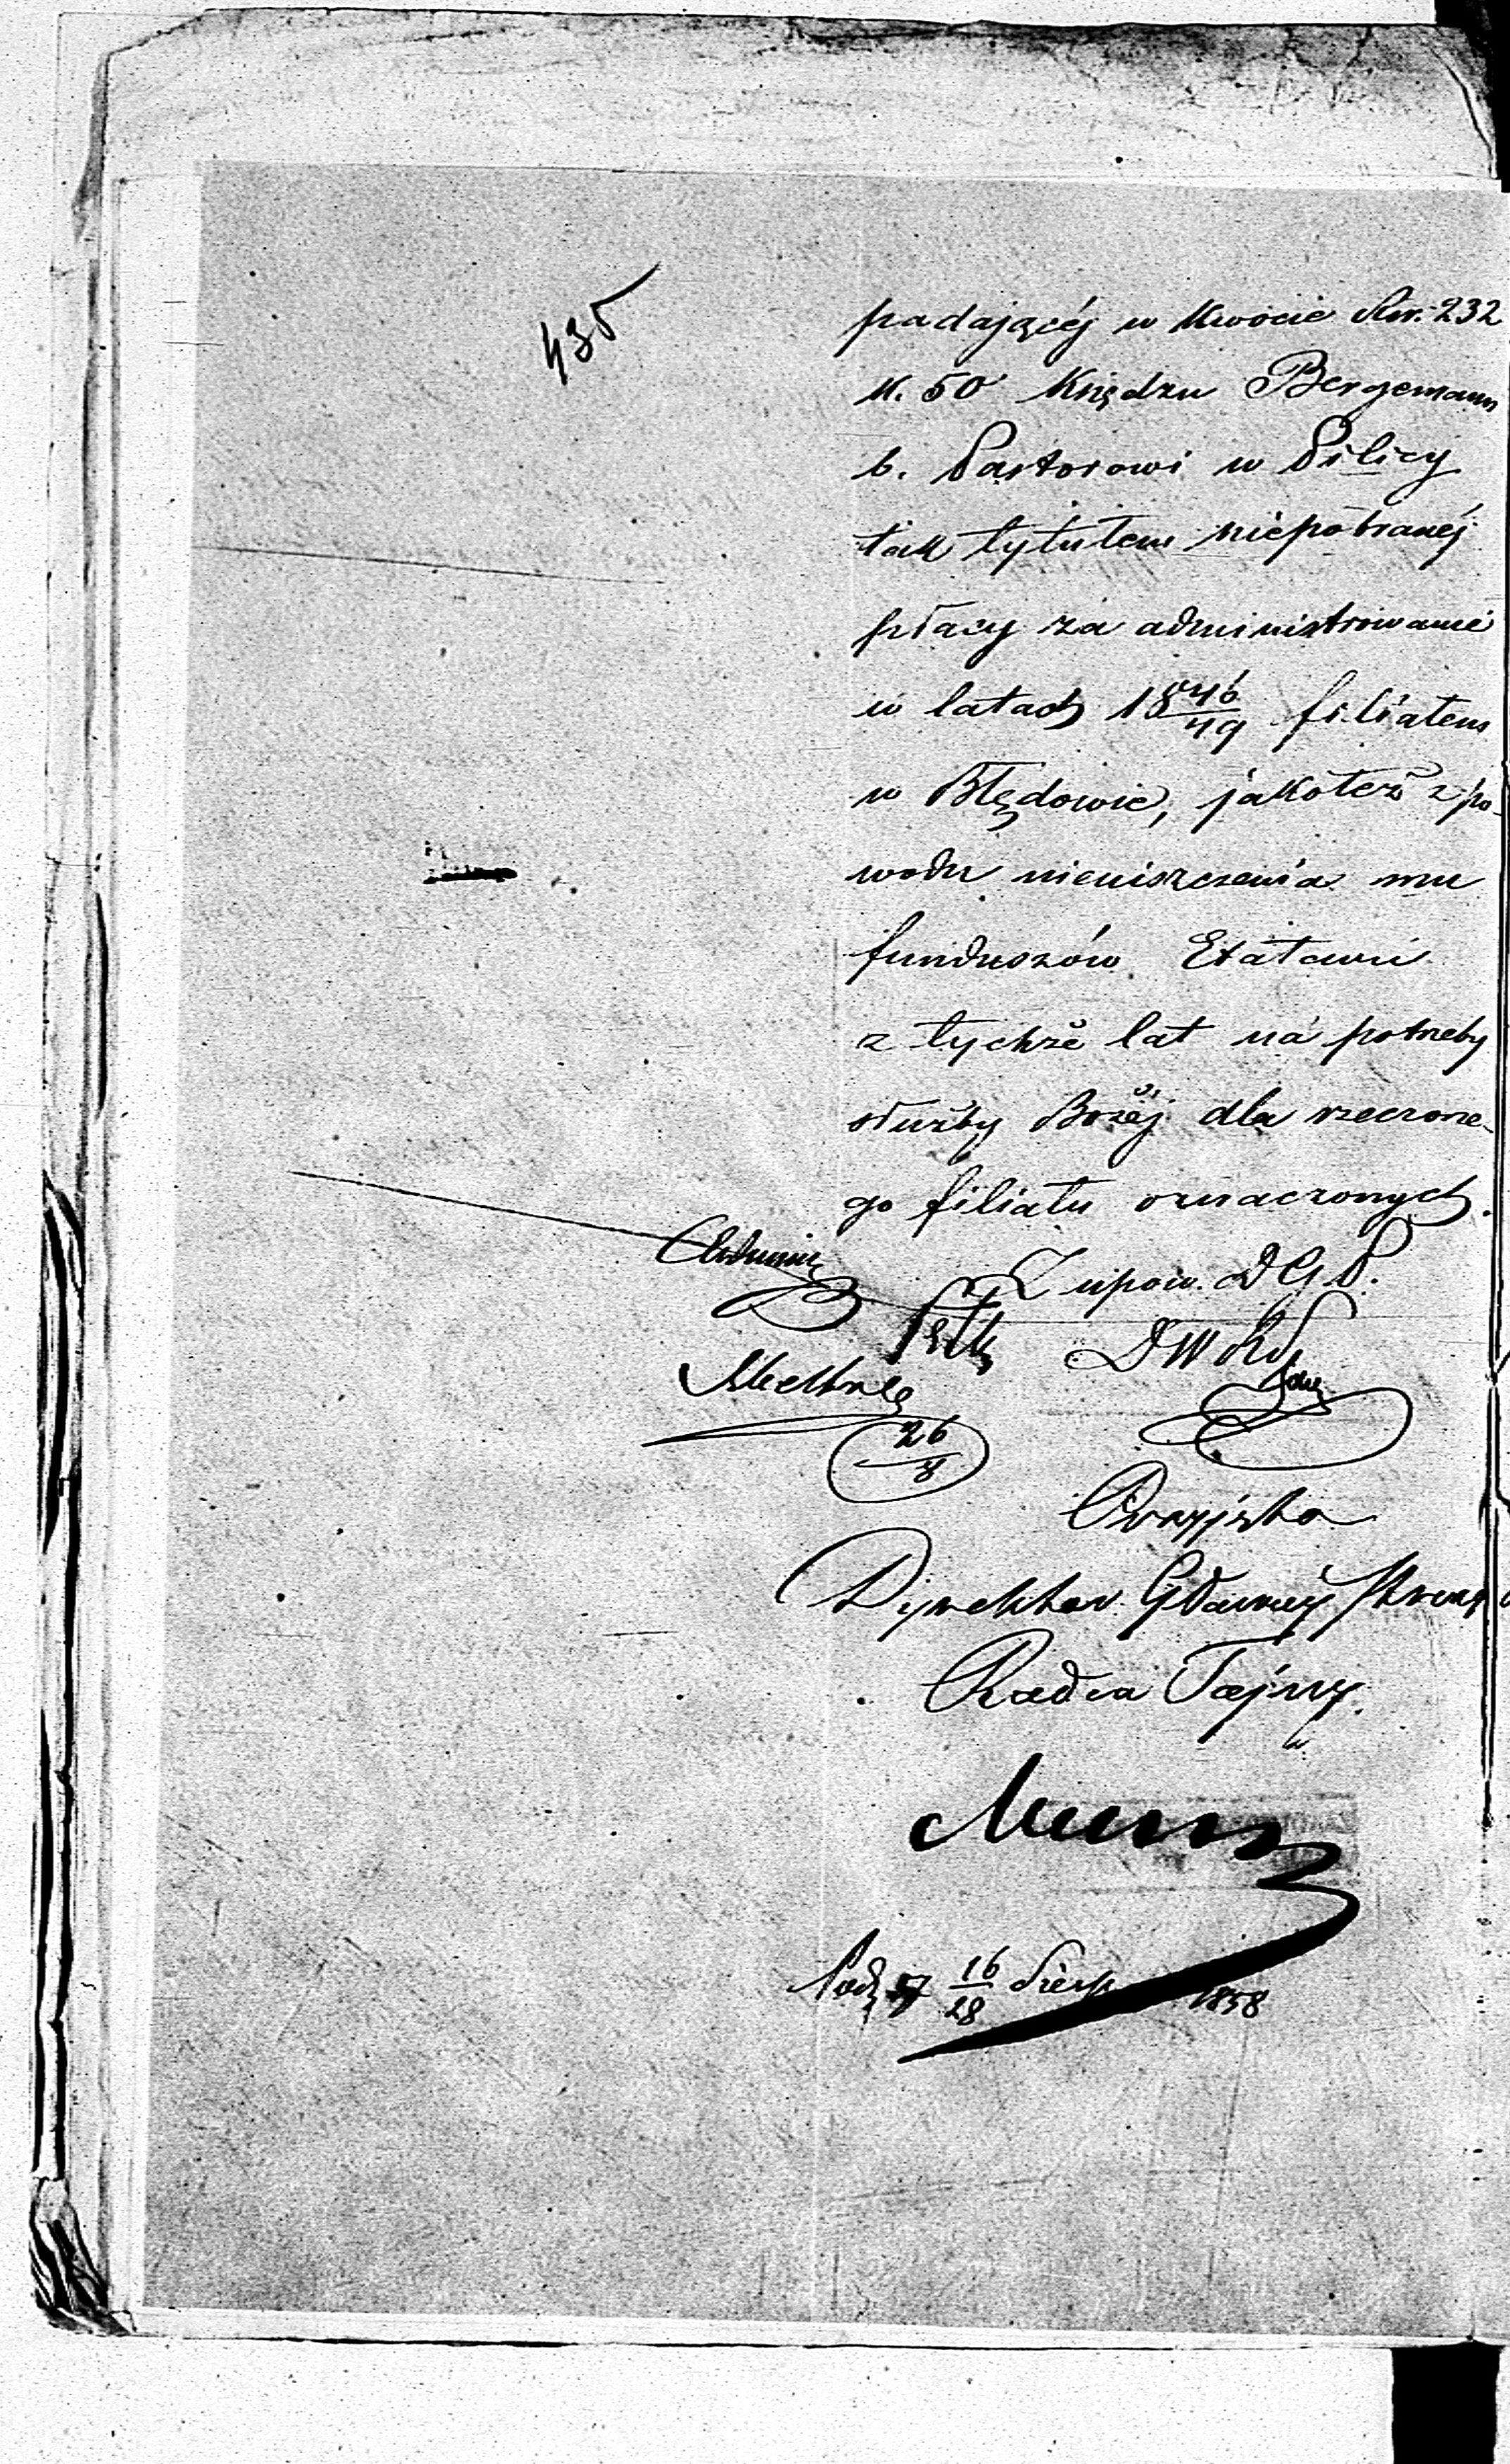 435
padającéj w kwocie Rsr. 232
k. 50 Księdzu Bergemann
b. Pastorowi w Pilicy
tak tytułem niepobranéj
płacy za administrowanie
w latach 1846/49 filiałem
w Błędowie, jakoteż z po-
wodu nieuiszczenia mu
funduszów Etatami
z tychże lat na potrzeby
służby Bożéj dla rzeczone-
go filiału oznaczonych.
Z upow. D G P.
D W R
26/8
Dyrektor Główney
Radca Tajny.
16/28 Sierp 1858